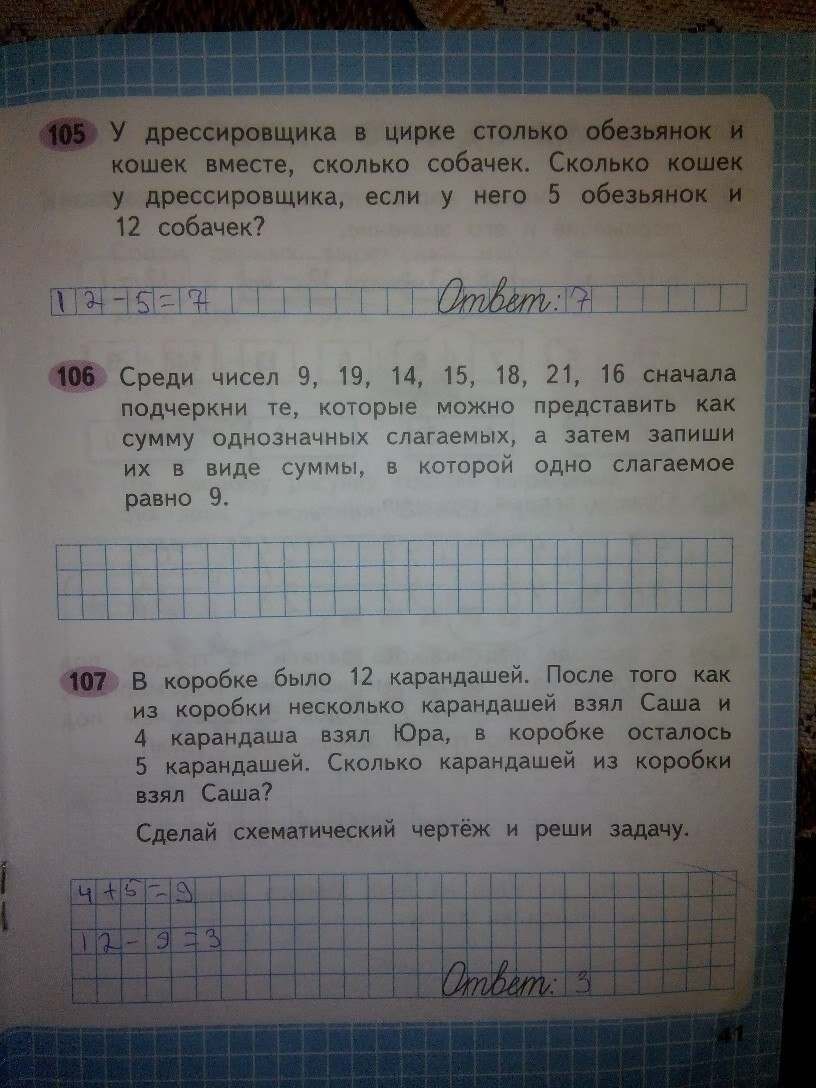 105 У дрессировщика в цирке столько обезьянок и
кошек вместе, сколько собачек. Сколько кошек
у дрессировщика, если у него 5 обезьянок и
12 собачек?
12-5=7 Ответ: 7
106 Среди чисел 9, 19, 14, 15, 18, 21, 16 сначала
подчеркни те, которые можно представить как
сумму однозначных слагаемых, а затем запиши
их в виде суммы, в которой одно слагаемое
равно 9.
107 В коробке было 12 карандашей. После того как
из коробки несколько карандашей взял Саша и
4 карандаша взял Юра, в коробке осталось
5 карандашей. Сколько карандашей из коробки
взял Саша?
Сделай схематический чертёж и реши задачу.
4+5=9
12-9=3
Ответ: 3
41